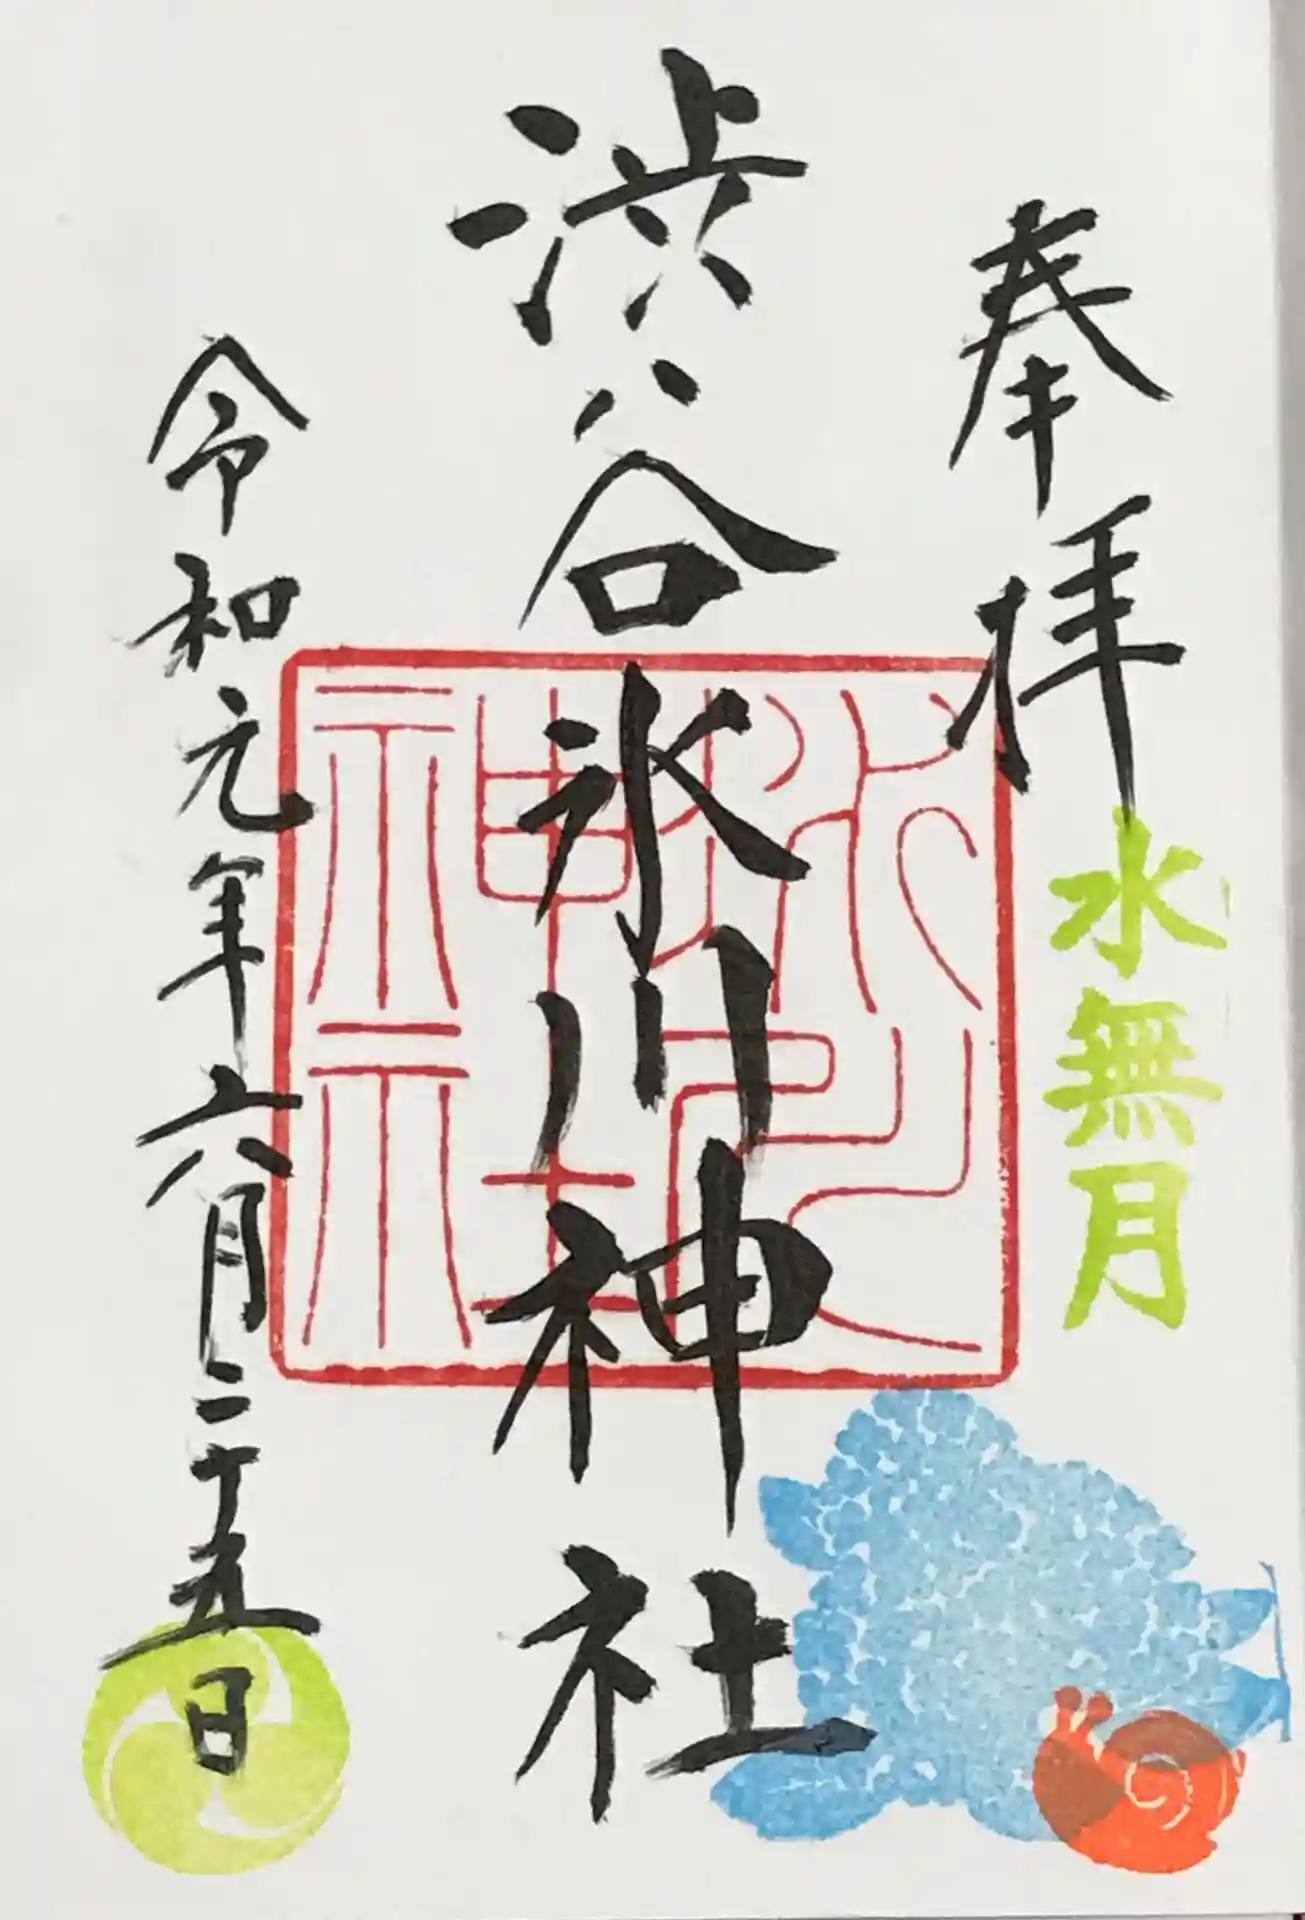 奉拝
水無月
渋谷氷川神社
氷川神社
令和元年六月二十五日